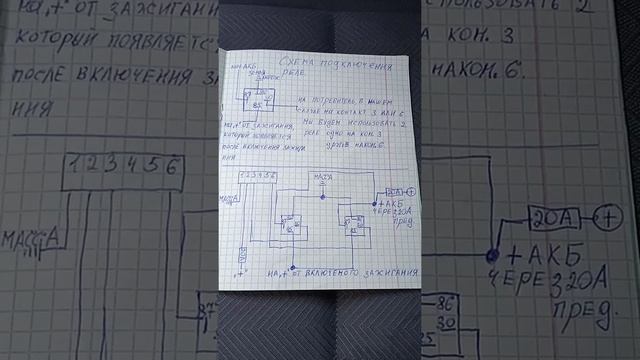 СХЕМА ПОДКЛЮЧЕНИЯ
РЕЛЕ.
АКБ
87
85
НА ПОТРЕБИТЕЛЬ, В НАШЕМ
СЛУЧАЕ НА КОНТАКТ 3 ИЛИ 6.
МЫ БУДЕМ ИСПОЛЬЗОВАТЬ 2
РЕЛЕ ОДНО НА КОН. 3
НА КОН. 6.
НА „+" ОТ ЗАЖИГАНИЯ,
КОТОРЫЙ ПОЯВЛЯЕТСЯ
ПОСЛЕ ВКЛЮЧЕНИЯ ЗАЖИГА
НИЯ
1 2 3 4 5 6
МАССА
МАССА
20А
+
+ АКБ
ЧЕРЕЗ 20А
ПРЕД.
„+"
НА „+" ОТ ВКЛЮЧЕНОГО ЗАЖИГАНИЯ
НА „+" ОТ ЗАЖИГАНИ
КОТОРЫЙ ПОЯВЛЯЕТС
ПОСЛЕ ВКЛЮЧЕНИЯ ЗА
НИЯ
1 2 3 4 5 6
МАССА
ПОЛЬЗОВАТЬ 2
НА КОН. 3
НА КОН. 6.
20А
+
+ АКБ
ЧЕРЕЗ 20А
ПРЕД.
86
30